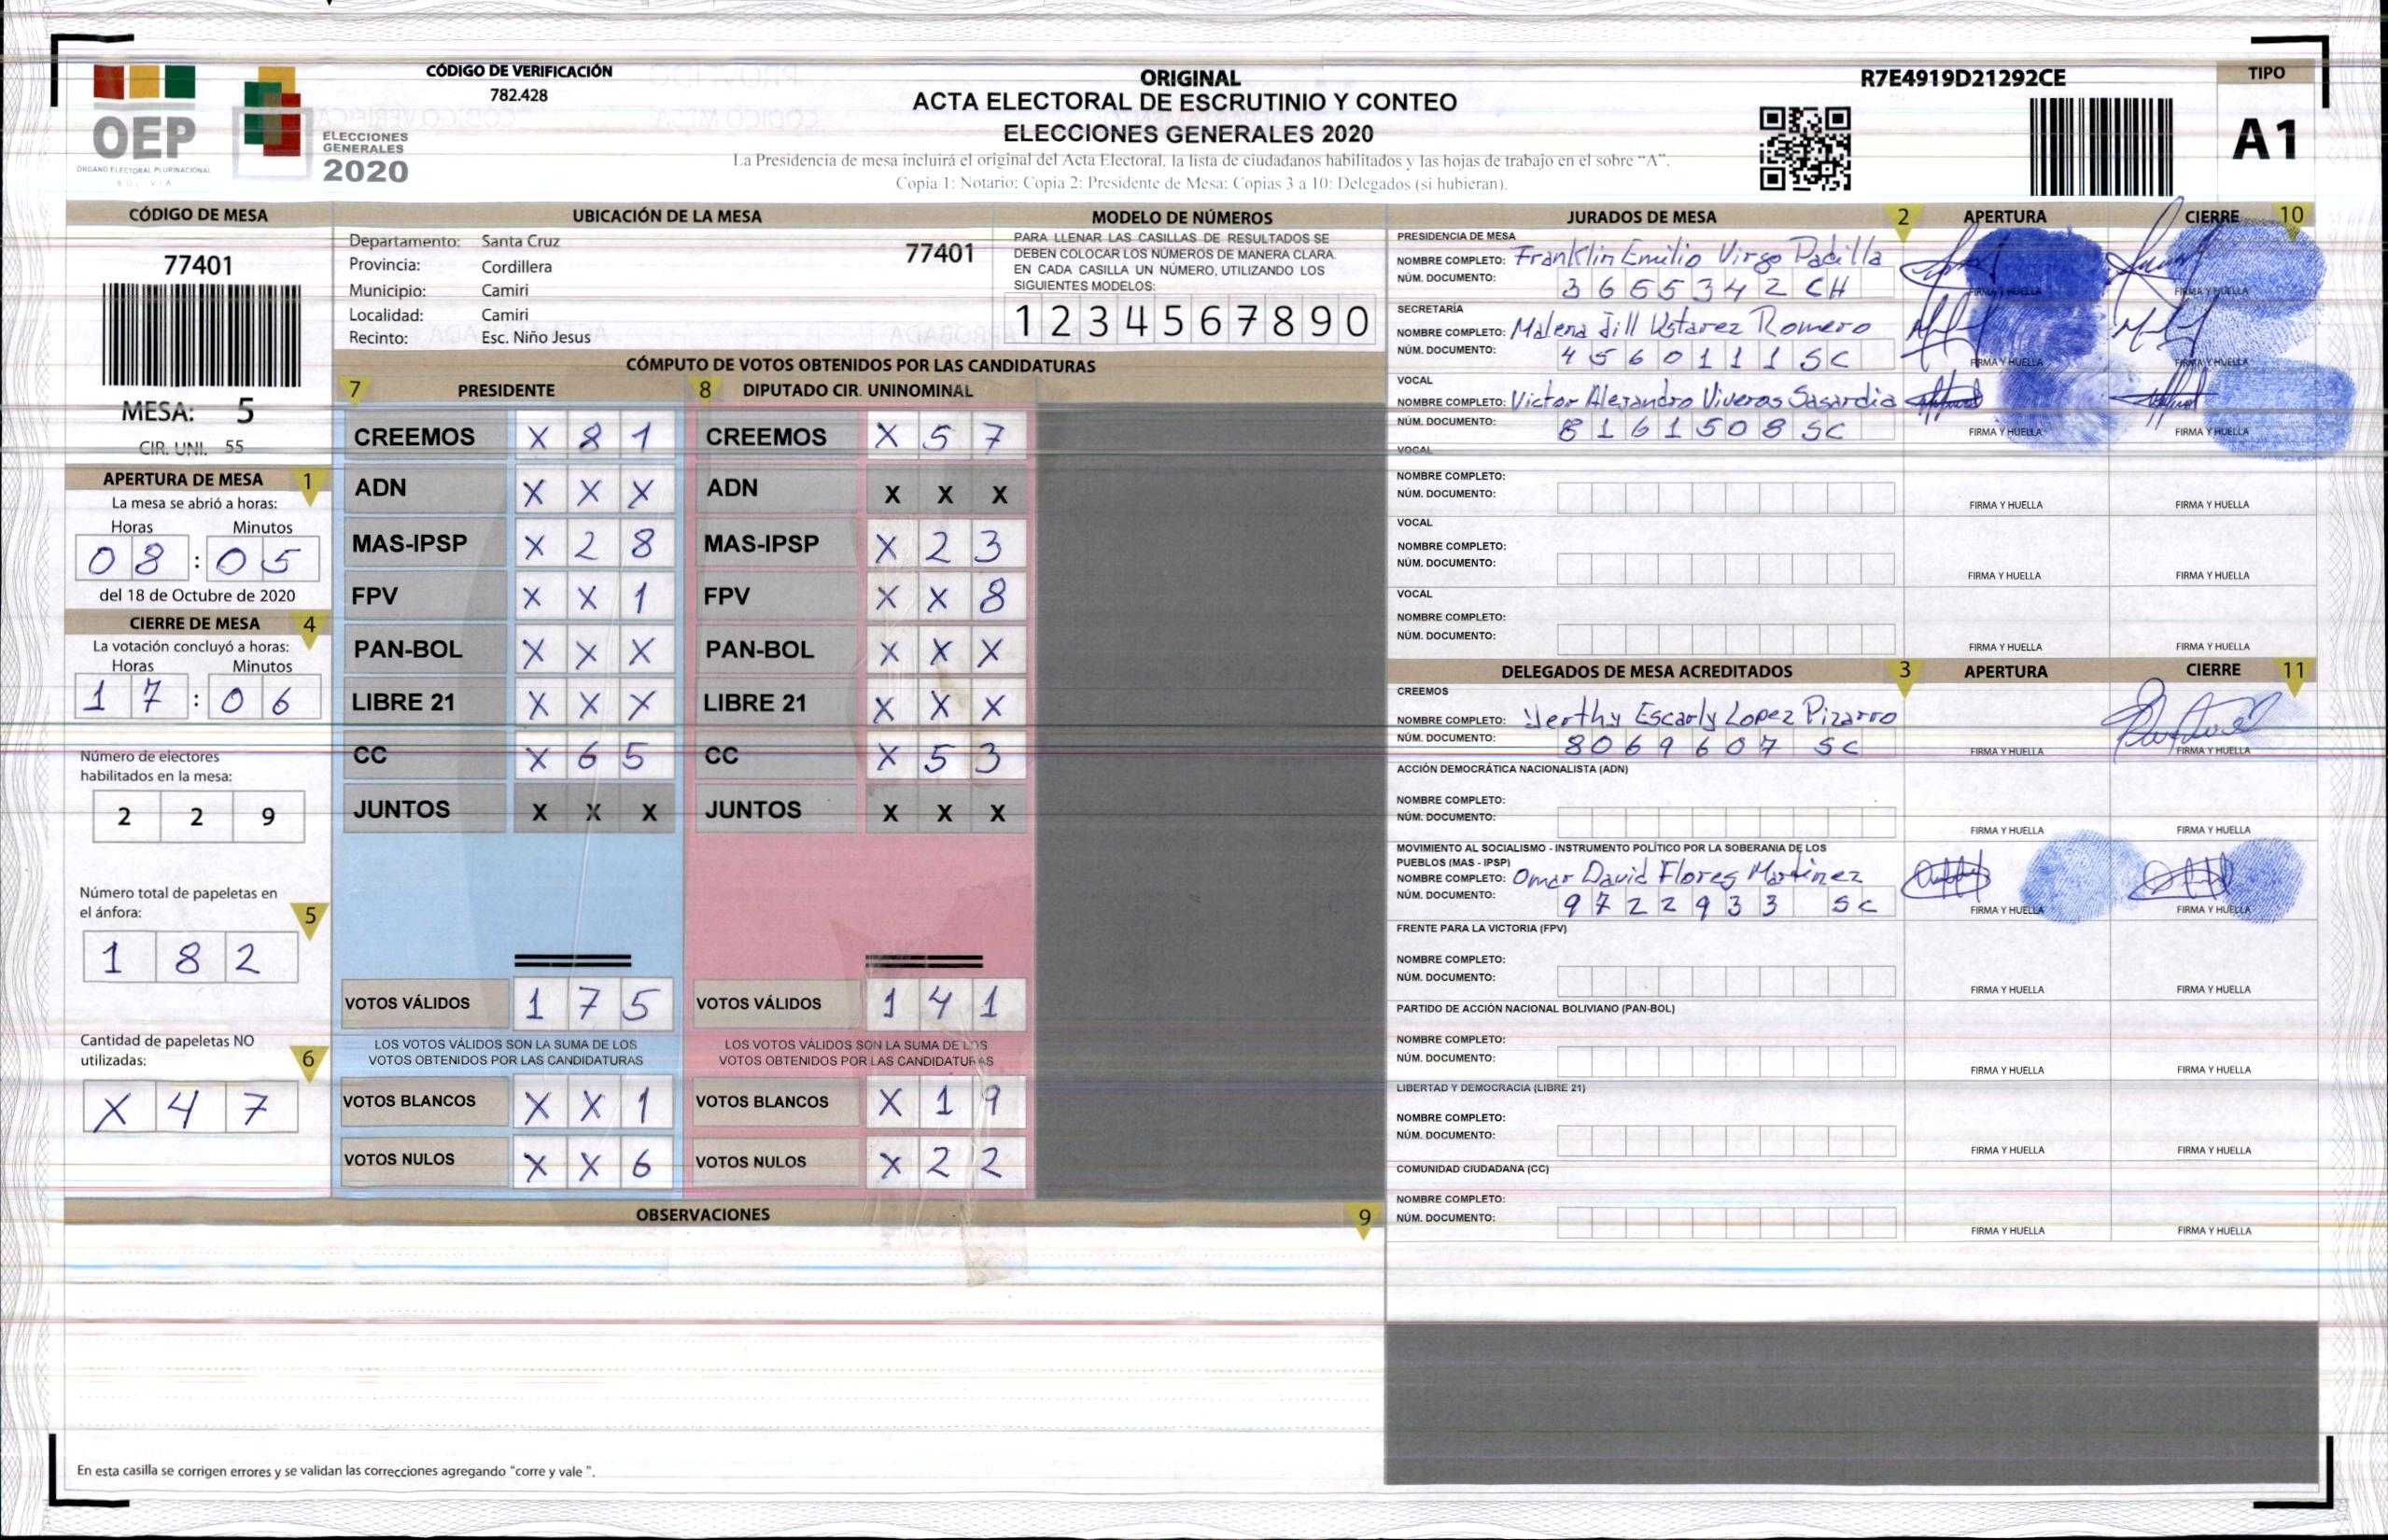 CÓDIGO DE VERIFICACIÓN
782.428
OEP
ÓRGANO ELECTORAL PLURINACIONAL
BOLIVIA
ELECCIONES
GENERALES
2020
ORIGINAL
ACTA ELECTORAL DE ESCRUTINIO Y CONTEO
ELECCIONES GENERALES 2020
La Presidencia de mesa incluirá el original del Acta Electoral, la lista de ciudadanos habilitados y las hojas de trabajo en el sobre “A”.
Copia 1: Notario; Copia 2: Presidente de Mesa; Copias 3 a 10: Delegados (si hubieran).
R7E4919D21292CE
TIPO
A1
CÓDIGO DE MESA
77401
MESA: 5
CIR. UNI. 55
APERTURA DE MESA 1
La mesa se abrió a horas:
Horas Minutos
08 : 05
del 18 de Octubre de 2020
CIERRE DE MESA 4
La votación concluyó a horas:
Horas Minutos
17 : 06
Número de electores
habilitados en la mesa:
2 2 9
Número total de papeletas en
el ánfora: 5
1 8 2
Cantidad de papeletas NO
utilizadas: 6
X 4 7
UBICACIÓN DE LA MESA
Departamento: Santa Cruz 77401
Provincia: Cordillera
Municipio: Camiri
Localidad: Camiri
Recinto: Esc. Niño Jesus
MODELO DE NÚMEROS
PARA LLENAR LAS CASILLAS DE RESULTADOS SE
DEBEN COLOCAR LOS NÚMEROS DE MANERA CLARA.
EN CADA CASILLA UN NÚMERO, UTILIZANDO LOS
SIGUIENTES MODELOS:
1 2 3 4 5 6 7 8 9 0
CÓMPUTO DE VOTOS OBTENIDOS POR LAS CANDIDATURAS
7 PRESIDENTE 8 DIPUTADO CIR. UNINOMINAL
CREEMOS X 8 1 CREEMOS X 5 7
ADN X X X ADN X X X
MAS-IPSP X 2 8 MAS-IPSP X 2 3
FPV X X 1 FPV X X 8
PAN-BOL X X X PAN-BOL X X X
LIBRE 21 X X X LIBRE 21 X X X
CC X 6 5 CC X 5 3
JUNTOS X X X JUNTOS X X X
VOTOS VÁLIDOS 1 7 5 VOTOS VÁLIDOS 1 4 1
LOS VOTOS VÁLIDOS SON LA SUMA DE LOS LOS VOTOS VÁLIDOS SON LA SUMA DE LOS
VOTOS OBTENIDOS POR LAS CANDIDATURAS VOTOS OBTENIDOS POR LAS CANDIDATURAS
VOTOS BLANCOS X X 1 VOTOS BLANCOS X 1 9
VOTOS NULOS X X 6 VOTOS NULOS X 2 2
OBSERVACIONES 9
En esta casilla se corrigen errores y se validan las correcciones agregando "corre y vale ".
JURADOS DE MESA 2 APERTURA CIERRE 10
PRESIDENCIA DE MESA
NOMBRE COMPLETO: Franklin Emilio Virgo Padilla
NÚM. DOCUMENTO: 3665342 CH
FIRMA Y HUELLA FIRMA Y HUELLA
SECRETARÍA
NOMBRE COMPLETO: Malena Jill Ustarez Romero
NÚM. DOCUMENTO: 4560111 SC
FIRMA Y HUELLA FIRMA Y HUELLA
VOCAL
NOMBRE COMPLETO: Victor Alejandro Viveros Sasardia
NÚM. DOCUMENTO: 8161508 SC
FIRMA Y HUELLA FIRMA Y HUELLA
VOCAL
NOMBRE COMPLETO:
NÚM. DOCUMENTO:
FIRMA Y HUELLA FIRMA Y HUELLA
VOCAL
NOMBRE COMPLETO:
NÚM. DOCUMENTO:
FIRMA Y HUELLA FIRMA Y HUELLA
VOCAL
NOMBRE COMPLETO:
NÚM. DOCUMENTO:
FIRMA Y HUELLA FIRMA Y HUELLA
DELEGADOS DE MESA ACREDITADOS 3 APERTURA CIERRE 11
CREEMOS
NOMBRE COMPLETO: Yerthy Escarly Lopez Pizarro
NÚM. DOCUMENTO: 8069607 SC
FIRMA Y HUELLA FIRMA Y HUELLA
ACCIÓN DEMOCRÁTICA NACIONALISTA (ADN)
NOMBRE COMPLETO:
NÚM. DOCUMENTO:
FIRMA Y HUELLA FIRMA Y HUELLA
MOVIMIENTO AL SOCIALISMO - INSTRUMENTO POLÍTICO POR LA SOBERANIA DE LOS
PUEBLOS (MAS - IPSP)
NOMBRE COMPLETO: Omar David Flores Martinez
NÚM. DOCUMENTO: 9722933 SC
FIRMA Y HUELLA FIRMA Y HUELLA
FRENTE PARA LA VICTORIA (FPV)
NOMBRE COMPLETO:
NÚM. DOCUMENTO:
FIRMA Y HUELLA FIRMA Y HUELLA
PARTIDO DE ACCIÓN NACIONAL BOLIVIANO (PAN-BOL)
NOMBRE COMPLETO:
NÚM. DOCUMENTO:
FIRMA Y HUELLA FIRMA Y HUELLA
LIBERTAD Y DEMOCRACIA (LIBRE 21)
NOMBRE COMPLETO:
NÚM. DOCUMENTO:
FIRMA Y HUELLA FIRMA Y HUELLA
COMUNIDAD CIUDADANA (CC)
NOMBRE COMPLETO:
NÚM. DOCUMENTO:
FIRMA Y HUELLA FIRMA Y HUELLA